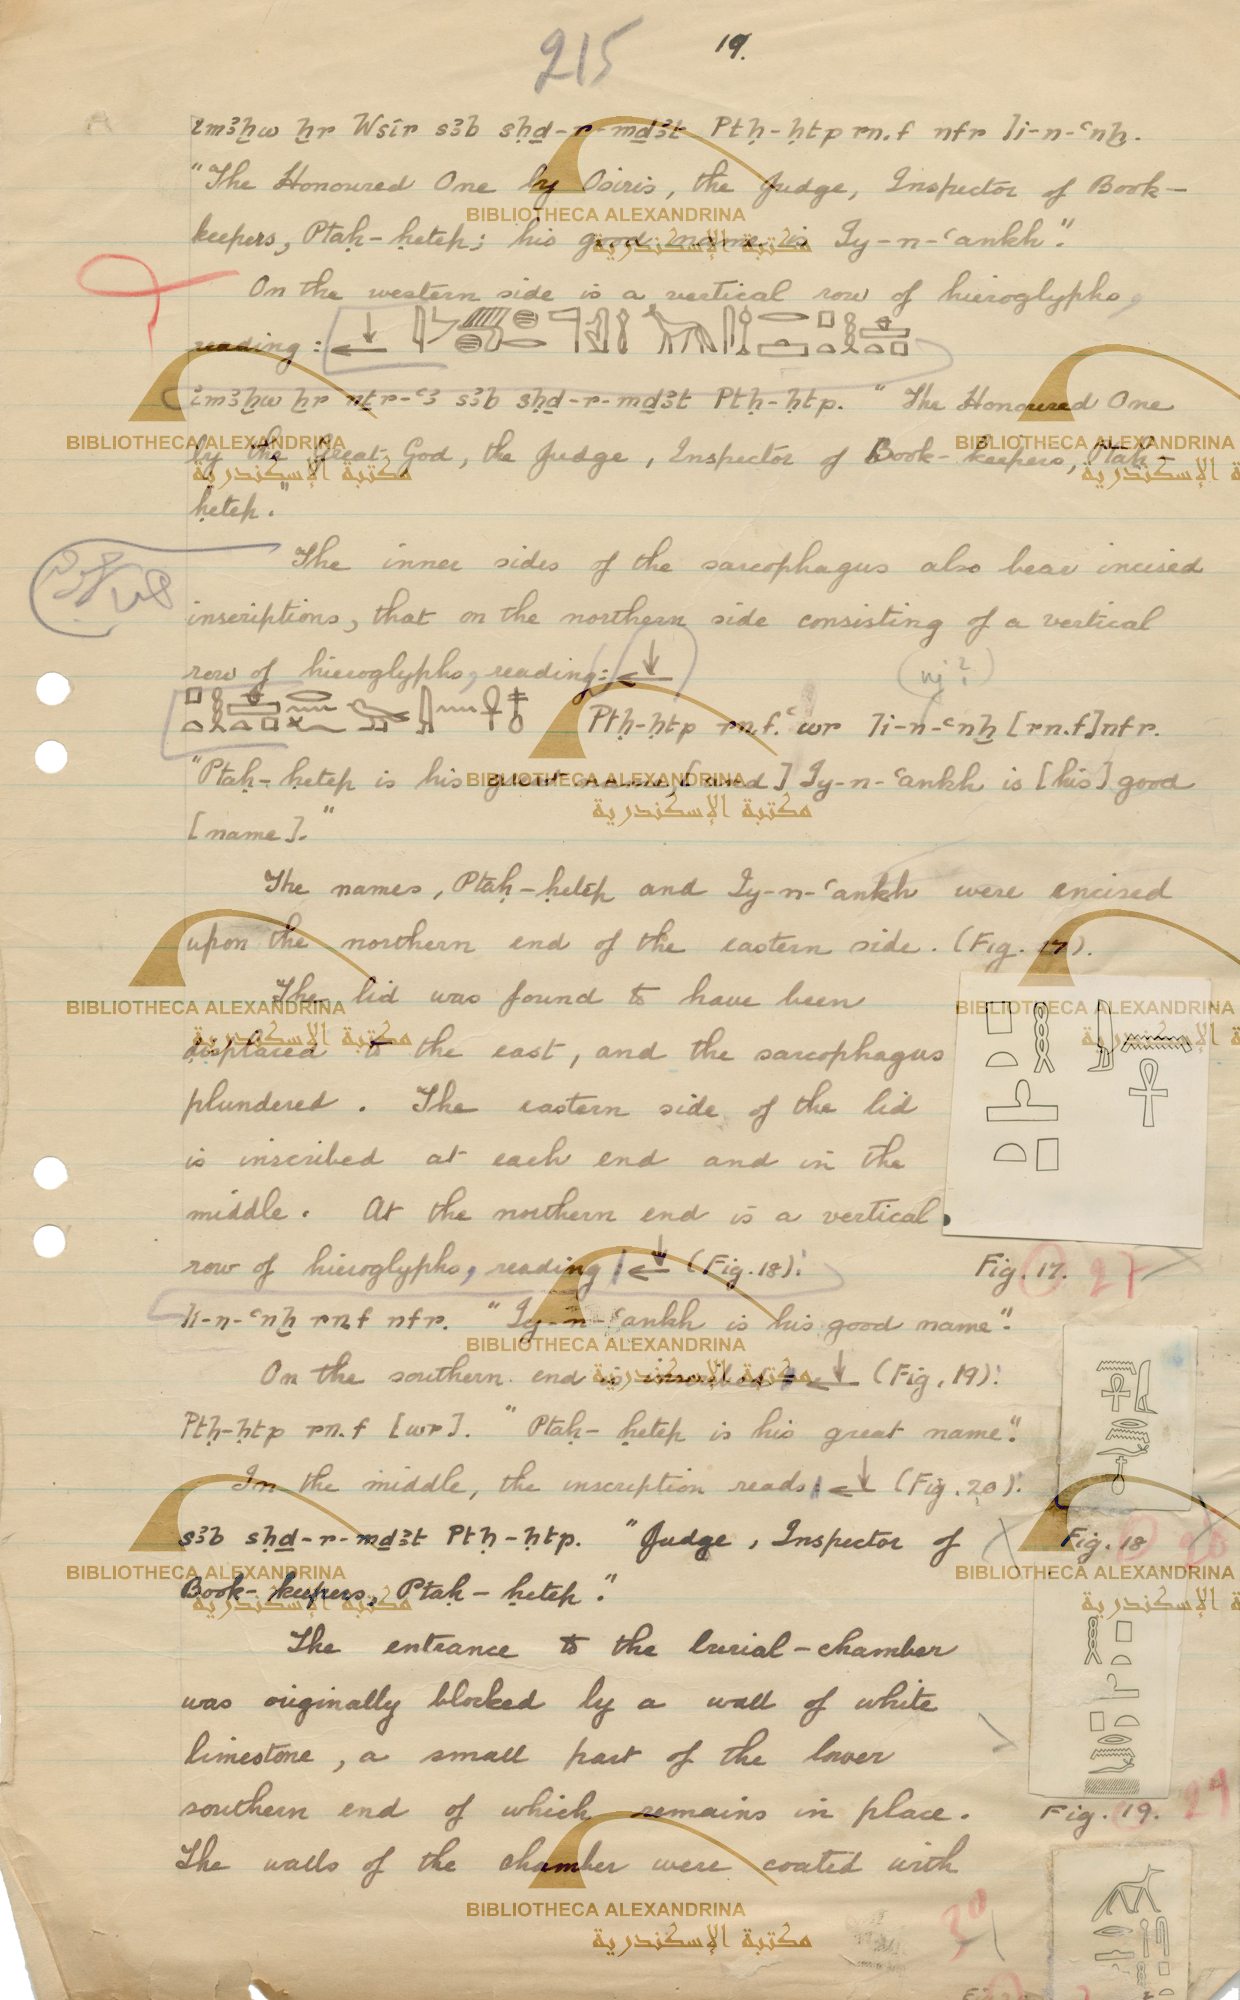 215 19.
im3ḫw ḫr Wsir s3b sḥḏ-r-mḏ3t Ptḥ-ḥtp rn.f nfr Ii-n-ꜥnḫ.
"The Honoured One by Osiris, the Judge, Inspector of Book-
keepers, Ptaḥ-ḥetep; his good name is Iy-n-ꜥankh".
On the western side is a vertical row of hieroglyphs,
reading:
im3ḫw ḫr nṯr-ꜥ3 s3b sḥḏ-r-mḏ3t Ptḥ-ḥtp. "The Honoured One
by the Great God, the Judge, Inspector of Book-keepers, Ptaḥ-
ḥetep."
The inner sides of the sarcophagus also bear incised
inscriptions, that on the northern side consisting of a vertical
row of hieroglyphs, reading:
Ptḥ-ḥtp rn.f ꜥ wr Ii-n-ꜥnḫ [rn.f] nfr.
"Ptaḥ-ḥetep is his great name, [and] Iy-n-ꜥankh is [his] good
[name]."
The names, Ptaḥ-ḥetep and Iy-n-ꜥankh were encised
upon the northern end of the eastern side. (Fig. 17).
The lid was found to have been
displaced to the east, and the sarcophagus
plundered. The eastern side of the lid
is inscribed at each end and in the
middle. At the northern end is a vertical
row of hieroglyphs, reading (Fig. 18):
Fig. 17. 27
Ii-n-ꜥnḫ rn.f nfr. "Iy-n-ꜥankh is his good name".
On the southern end is inscribed (Fig. 19):
Ptḥ-ḥtp rn.f [wr]. "Ptaḥ-ḥetep is his great name".
In the middle, the inscription reads (Fig. 20):
s3b sḥḏ-r-mḏ3t Ptḥ-ḥtp. "Judge, Inspector of
Fig. 18
Book-keepers, Ptaḥ-ḥetep."
The entrance to the burial-chamber
was originally blocked by a wall of white
limestone, a small part of the lower
southern end of which remains in place.
Fig. 19. 29
The walls of the chamber were coated with
30
BIBLIOTHECA ALEXANDRINA
مكتبة الإسكندرية